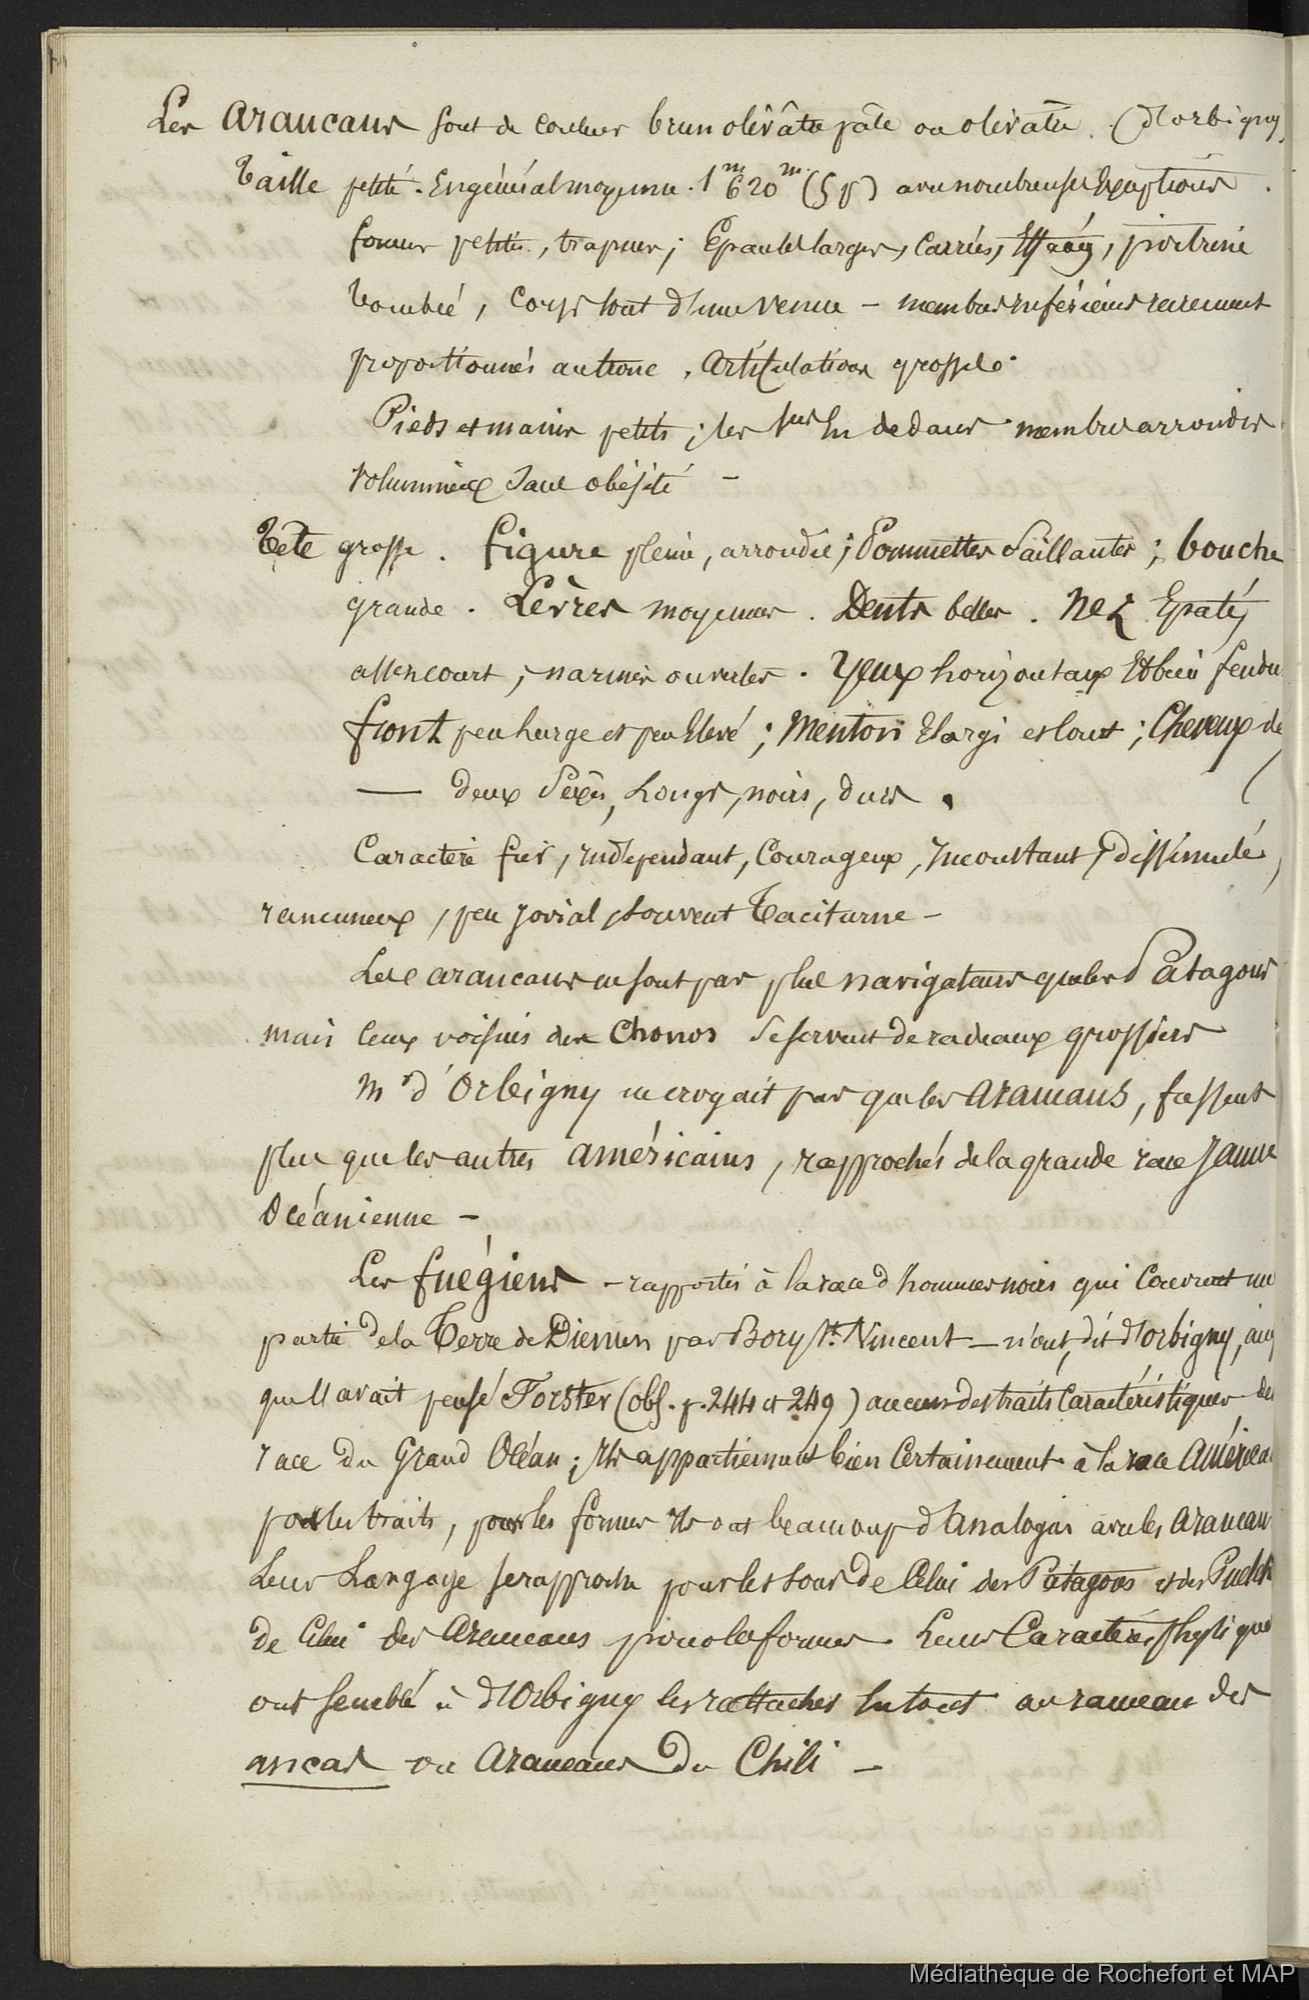 Les araucans sont de couleur brun olivâtre pâle ou olivâtre. (d'orbigny)
Taille petite. En général moyenne. 1m 620m (5 p) avec nombreuses Exceptions.
formes petites, trapues; Epaules larges, carrées, Effacées, poitrine
bombée, corps tout d'une venue – membres inférieurs rarement
proportionnés au tronc. articulations grosses.
Pieds et mains petits; les 1ers En dedans membres arrondis
volumineux sans obésité –
Tête grosse. figure pleine, arrondie; Pommettes Saillantes; bouche
grande. Lèvres moyennes. Dents belles. Nez Epaté,
assez court; narines ouvertes. Yeux horizontaux Et bien fendu
front peu large et peu Elevé; Menton Elargi et court; Cheveux de
— deux Sexes, Longs, noirs, durs.
Caractère fier, independant, Courageux, Inconstant, dissimulé,
rancuneux, peu jovial, souvent Taciturne –
Les araucans ne sont pas plus navigateurs que les Patagons
mais ceux voisins des Chonos se servent de radeaux grossiers
Mr d'Orbigny ne croyait pas que les araucans, fussent
plus que les autres américains, rapprochés de la grande race Jaune
Océanienne –
Les fuégiens – rapportés à la race d'hommes noirs qui Couvrent un
partie de la Terre de Diemen par Bory St. Vincent – n'ont, dit d'orbigny, ainsi
qu'il avait pensé Forster (obs. p. 244 et 249) aucuns des traits Caractéristiques de
race du Grand Océan; Ils appartiennent bien Certainement à la race américa
par les traits, pour les formes Ils ont beaucoup d'Analogies avec les araucan
Leur Langage se rapproche pour les sons de Celui des Patagons et des Puelch
de Celui des Araucans pour les formes. Leurs Caractères physique
ont semblé à d'Orbigny les rattacher En tout au rameau des
ancas ou Araucans du Chili –
Médiathèque de Rochefort et MAP